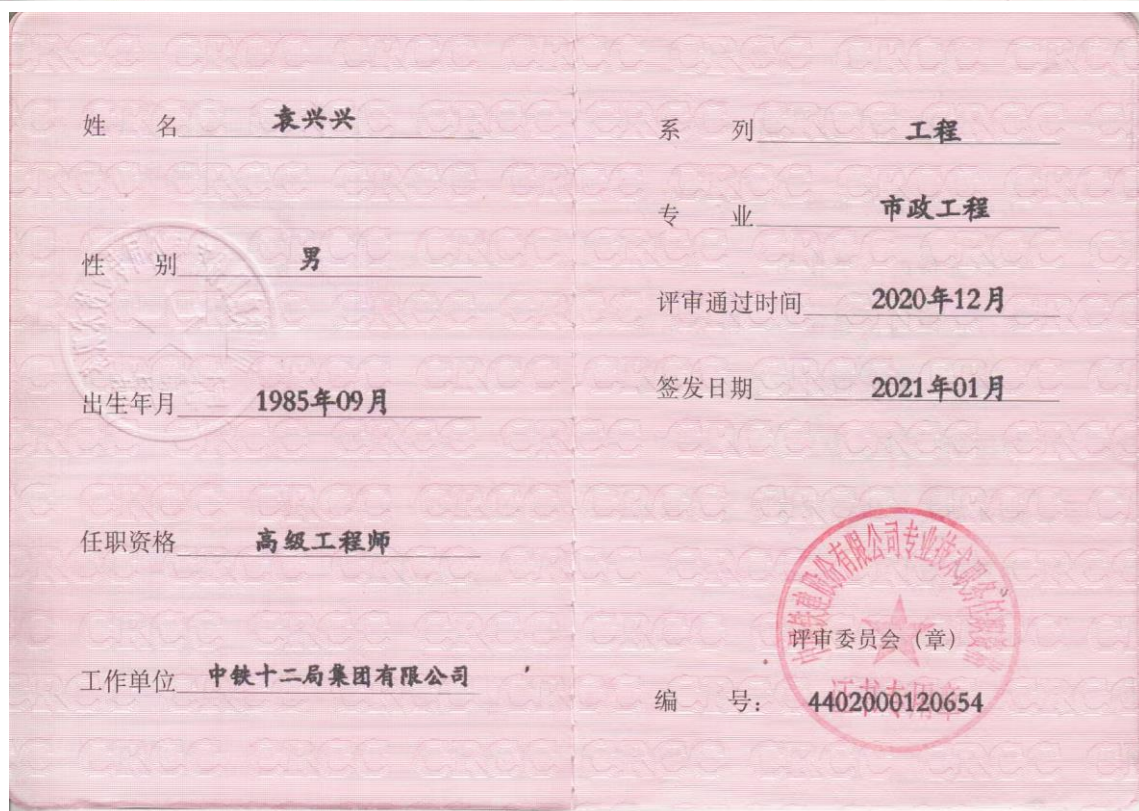 姓 名 袁兴兴
性 别 男
出生年月 1985年09月
任职资格 高级工程师
工作单位 中铁十二局集团有限公司
系 列 工程
专 业 市政工程
评审通过时间 2020年12月
签发日期 2021年01月
中国铁建股份有限公司专业技术职务任职资格
评审委员会（章）
证书专用章
编 号： 4402000120654
CRCC